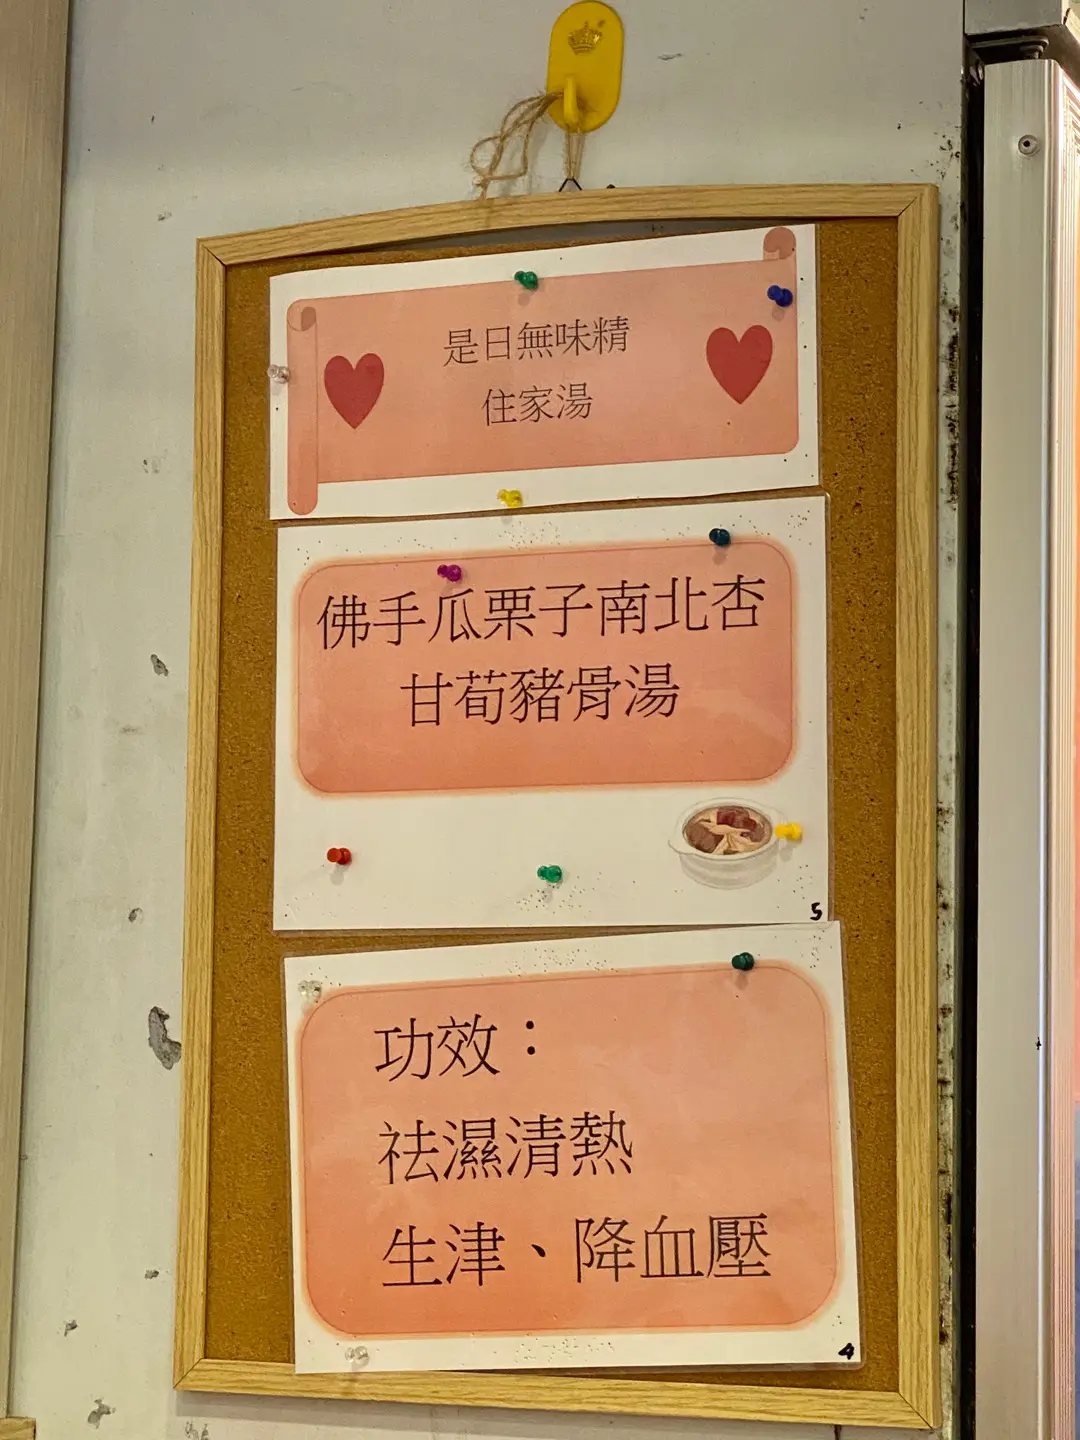 是日無味精
住家湯
佛手瓜栗子南北杏
甘荀豬骨湯
5
功效：
祛濕清熱
生津、降血壓
4